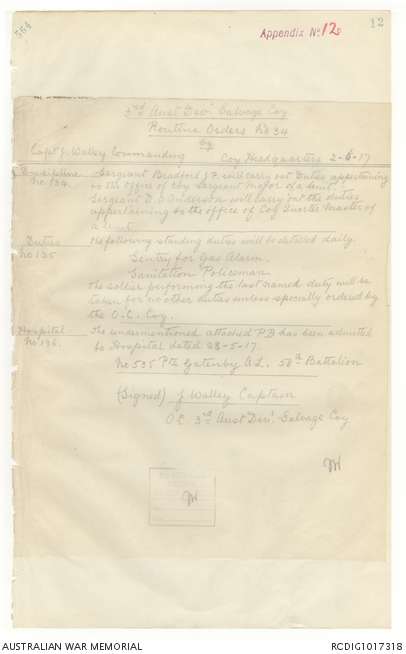 564
Appendix No 12
12
3rd Aust Div'l Salvage Coy
Routine Orders No 34
by
Capt J. Walley Commanding Coy Headquarters 2-6-17
No 134. Sergeant Bradford J F. will carry out Duties appertaining
to the Office of Coy Sergeant Major of a Unit.
Sergeant will carry out the duties
appertaining to the office of Coy Quarter Master of
a Unit
Duties The following standing duties will be detailed daily.
No 135 Sentry for Gas Alarm.
Sanitation Policeman
The soldier performing the last named duty will be
taken for no other duties unless specially ordered by
the O.C. Coy.
Hospital The undermentioned attached P.B has been admitted
No 136. to Hospital dated 28-5-17.
No 535 Pte Gatenby A.L. 50th Battalion
(Signed) J Walley Captain
O.C. 3rd Aust Div'l Salvage Coy
AUSTRALIAN WAR MEMORIAL
RCDIG1017318